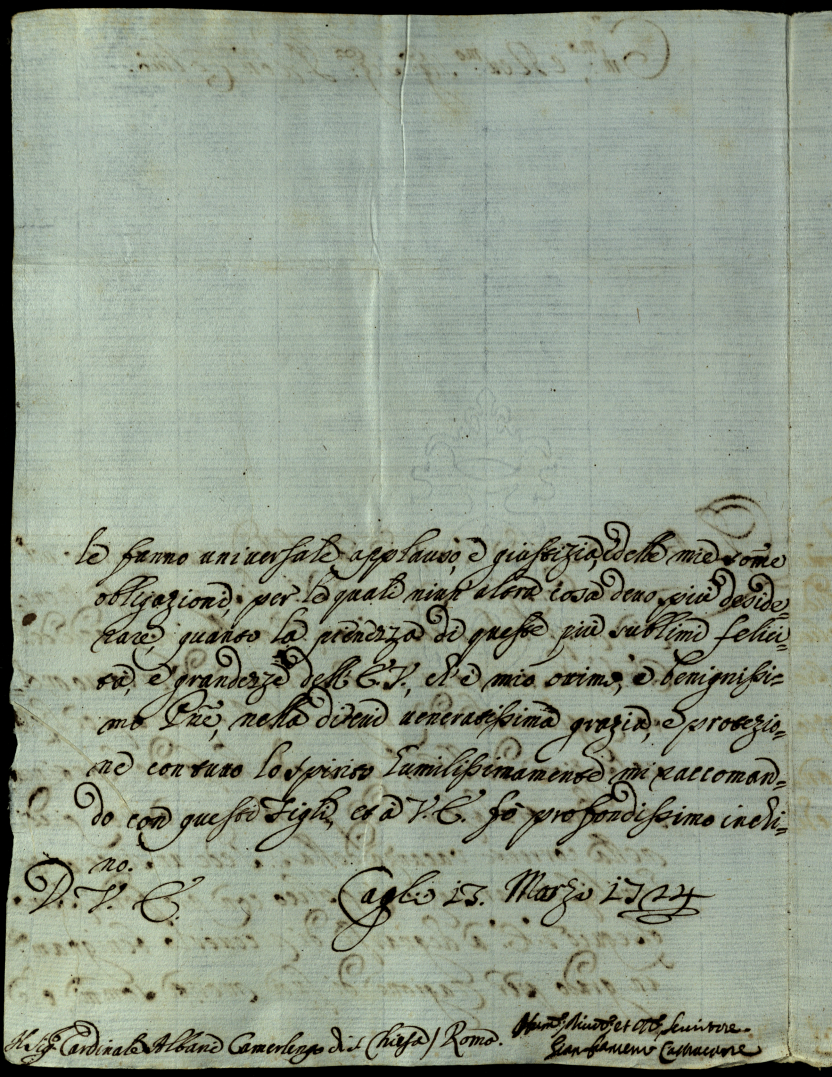 le fanno universale applauso, e giustizia, e delle mie som̃e
obligazioni, per le quale niun altra cosa devo più deside=
rare, quanto la pienezza di queste più sublimi felici=
tà, e grandezze dell' E. V., ch'è mio ottimo, e benignissi=
mo Prñe, nella di cui veneratissima grazia, e protezio=
ne con tutto lo spirito humilissimamente mi raccoman=
do con questi Figli, et à V. E. fò profondissimo inchi=
no.
D. V. E. Cagli 13. Marzo 1724
Al Sig.r Cardinale Albani Camerlengo di S. Chiesa / Roma.
Humil.mo Divot.mo et Obl.mo Servitore